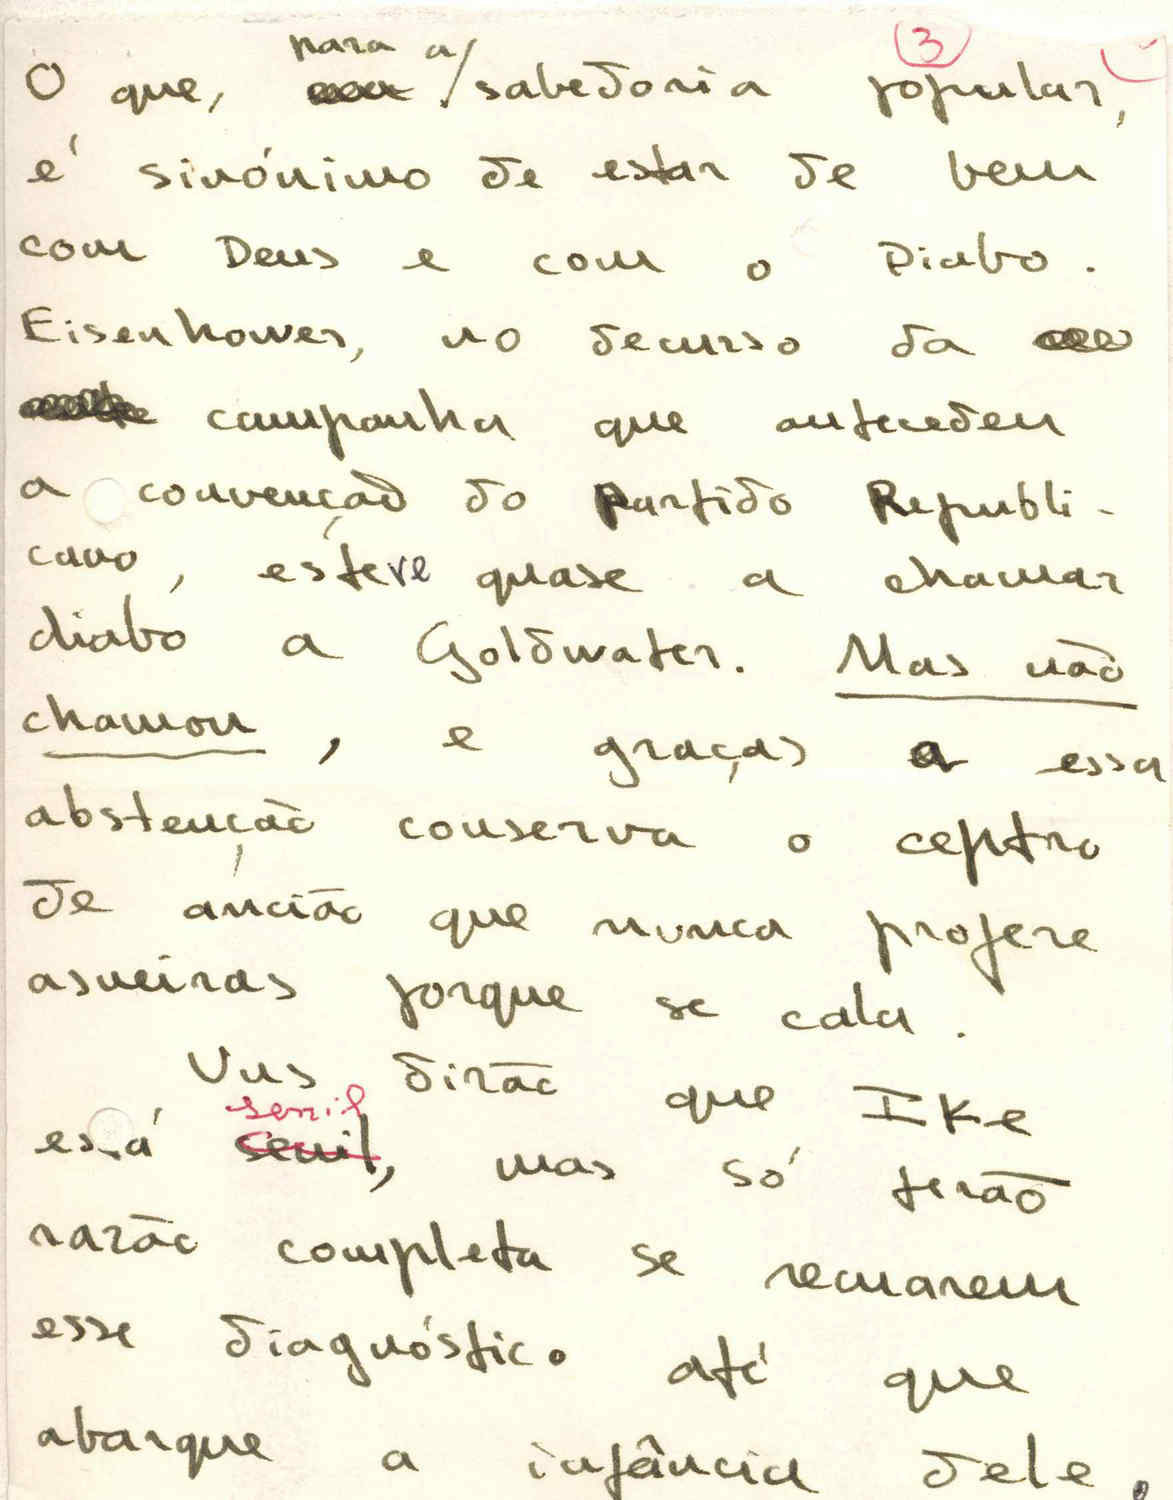 3
O que, para a sabedoria popular,
é sinónimo de estar de bem
com Deus e com o Diabo.
Eisenhower, no decurso da
campanha que antecedeu
a convenção do Partido Republi-
cano, esteve quase a chamar
diabo a Goldwater. Mas não
chamou, e graças a essa
abstenção conserva o ceptro
de ancião que nunca profere
asneiras porque se cala.
Uns dirão que Ike
está senil, mas só terão
razão completa se recuarem
esse diagnóstico até que
abarque a infância dele.